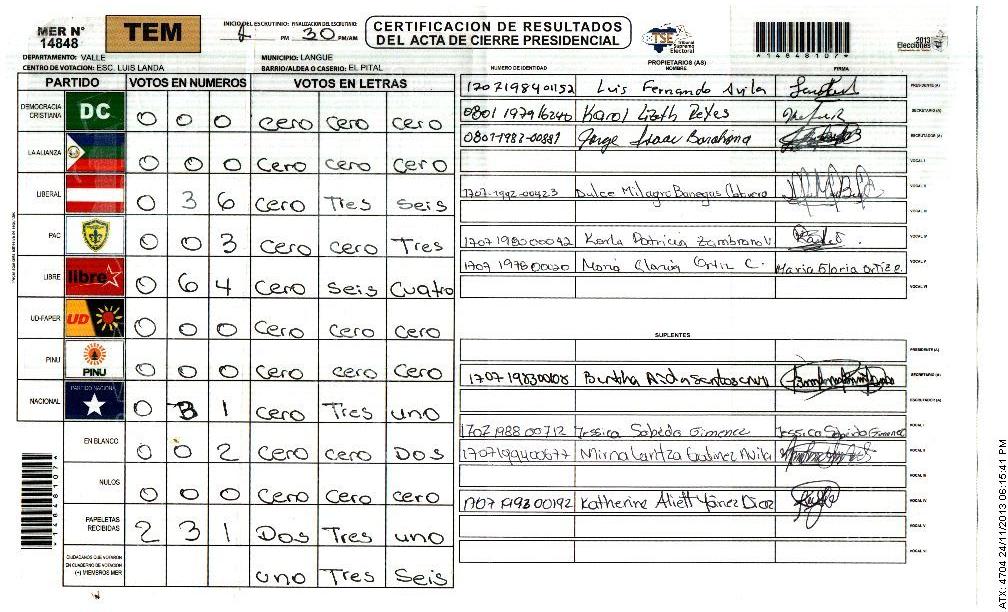 MER N° 14848
TEM
INICIO DEL ESCRUTINIO: FINALIZACION DEL ESCRUTINIO:
PM 30 PM/AM
CERTIFICACION DE RESULTADOS
DEL ACTA DE CIERRE PRESIDENCIAL
TSE Tribunal Supremo Electoral
*14848107*
2013 Elecciones
DEPARTAMENTO: VALLE MUNICIPIO: LANGUE
CENTRO DE VOTACION: ESC. LUIS LANDA BARRIO/ALDEA O CASERIO: EL PITAL
PARTIDO VOTOS EN NUMEROS VOTOS EN LETRAS
DEMOCRACIA CRISTIANA DC 0 0 0 cero cero cero
LA ALIANZA 0 0 0 cero cero cero
LIBERAL 0 3 6 cero Tres seis
PAC 0 0 3 cero cero Tres
LIBRE libre 0 6 4 cero seis cuatro
UD-FAPER UD 0 0 0 cero cero cero
PINU PINU 0 0 0 cero cero cero
NACIONAL PARTIDO NACIONAL 0 3 1 cero Tres uno
EN BLANCO 0 0 2 cero cero Dos
NULOS 0 0 0 cero cero cero
PAPELETAS RECIBIDAS 2 3 1 Dos Tres uno
CIUDADANOS QUE VOTARON EN CUADERNO DE VOTACION (+) MIEMBROS MER uno Tres seis
*14848107*
PROPIETARIOS (AS)
NUMERO DE IDENTIDAD NOMBRE FIRMA
1707198401152 Luis Fernando Avila PRESIDENTE (A)
0801 1979 16240 Karol Lizeth Reyes SECRETARIO (A)
0801-1982-00881 Jorge Isaac Barahona ESCRUTADOR (A)
VOCAL I
1707-1992-00423 Dulce Milagro Banegas VOCAL II
VOCAL III
1707 1980 00042 Karla Patricia Zambrano V VOCAL IV
1707 1978 00020 Maria Gloria Ortiz C. Maria Gloria Ortiz C. VOCAL V
VOCAL VI
SUPLENTES
PRESIDENTE (A)
1707 1983 00108 Bertha SECRETARIO (A)
ESCRUTADOR (A)
1707 1988 00712 Jessica Sabeda Gimenez Jessica Gimenez VOCAL I
1707199400677 Mirna Avila VOCAL II
VOCAL III
1707 1993 00192 Katherine Aliett Yánez Díaz VOCAL IV
VOCAL V
VOCAL VI
ATX: 4704 24/11/2013 06:15:41 PM